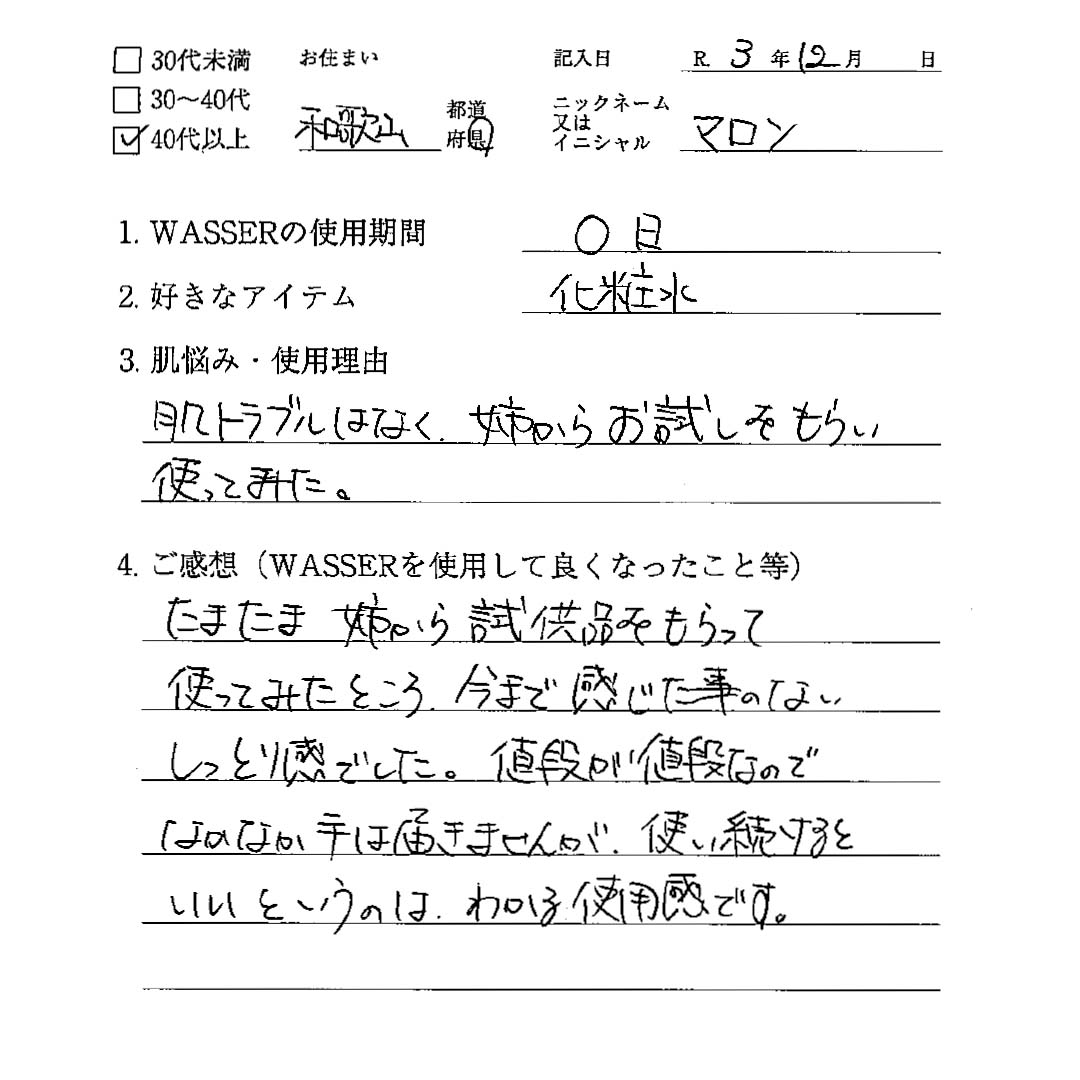 □ 30代未満 お住まい 記入日 R. 3 年 12 月 日
□ 30～40代 和歌山 都道府県 ニックネーム又はイニシャル マロン
☑ 40代以上
1. WASSERの使用期間 〇日
2. 好きなアイテム 化粧水
3. 肌悩み・使用理由
肌トラブルはなく、姉からお試しをもらい
使ってみた。
4. ご感想（WASSERを使用して良くなったこと等）
たまたま 姉から試供品をもらって
使ってみたところ、今まで感じた事のない
しっとり感でした。値段が値段なので
なかなか手は届きませんが、使い続けると
いいというのは、わかる使用感です。